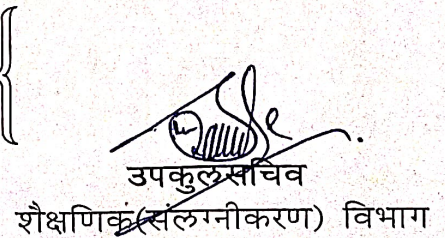 उपकुलसचिव
शैक्षणिक(संलग्नीकरण) विभाग